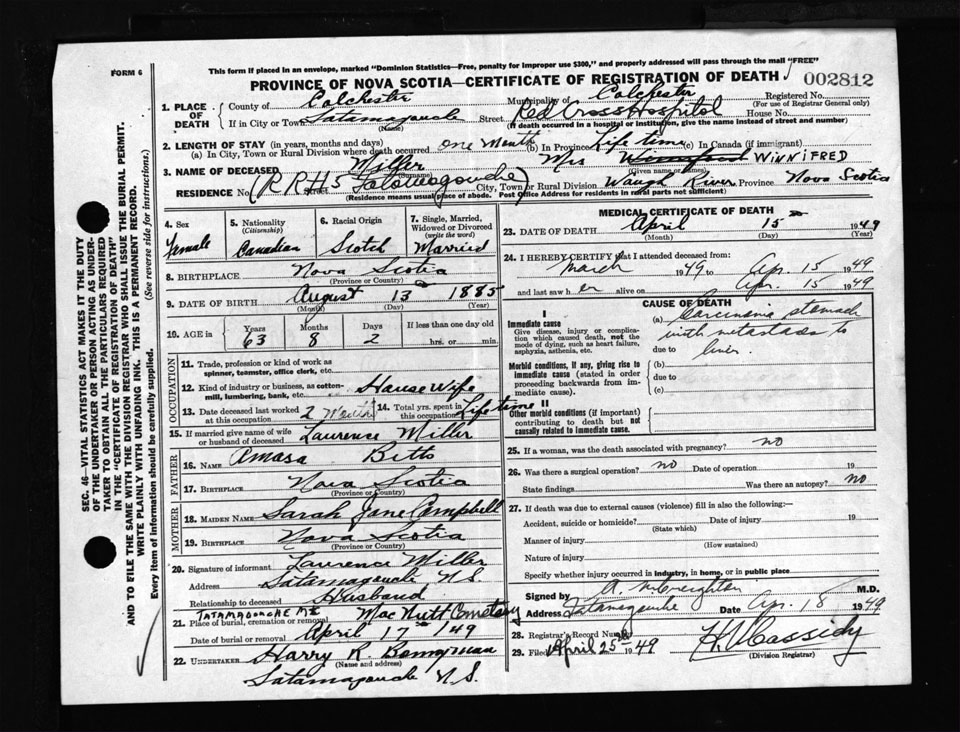 This form if placed in an envelope, marked "Dominion Statistics—Free, penalty for improper use $300," and properly addressed will pass through the mail "FREE"
FORM 6
PROVINCE OF NOVA SCOTIA—CERTIFICATE OF REGISTRATION OF DEATH
002812
1. PLACE OF DEATH
County of Colchester Municipality of Colchester Registered No.
(For use of Registrar General only)
If in City or Town Tatamagouche Street Red Cross Hospital House No.
(Name) (If death occurred in a hospital or institution, give the name instead of street and number)
2. LENGTH OF STAY (in years, months and days)
(a) In City, Town or Rural Division where death occurred one Month (b) In Province Life time (c) In Canada (if immigrant)
3. NAME OF DECEASED Miller Mrs WINNIFRED
(Surname) (Given name or names)
RESIDENCE No. R R #5 Street Tatamagouche City, Town or Rural Division Waugh River Province Nova Scotia
(Residence means usual place of abode. Post Office Address for residents in rural parts not sufficient)
4. Sex
Female
5. Nationality
(Citizenship)
Canadian
6. Racial Origin
Scotch
7. Single, Married, Widowed or Divorced
(write the word)
Married
8. BIRTHPLACE Nova Scotia
(Province or Country)
9. DATE OF BIRTH August 13 1885
(Month) (Day) (Year)
10. AGE in Years Months Days If less than one day old
63 8 2 hrs. or min.
OCCUPATION
11. Trade, profession or kind of work as spinner, teamster, office clerk, etc.
12. Kind of industry or business, as cotton-mill, lumbering, bank, etc. House Wife
13. Date deceased last worked at this occupation 2 Months
14. Total yrs. spent in this occupation Lifetime
15. If married give name of wife or husband of deceased Laurence Miller
FATHER
16. NAME Amasa Betts
17. BIRTHPLACE Nova Scotia
(Province or Country)
MOTHER
18. MAIDEN NAME Sarah Jane Campbell
19. BIRTHPLACE Nova Scotia
(Province or Country)
20. Signature of informant Laurence Miller
Address Tatamagouche N.S.
Relationship to deceased Husband
TATAMAGOUCHE N.S.
21. Place of burial, cremation or removal MacNutt Cemetery
Date of burial or removal April 17 1949
22. UNDERTAKER Harry R.
(Name and address)
Tatamagouche N.S.
MEDICAL CERTIFICATE OF DEATH
23. DATE OF DEATH April 15 1949
(Month) (Day) (Year)
24. I HEREBY CERTIFY that I attended deceased from:
March 1949 to Apr. 15 1949
and last saw her alive on Apr. 15 1949
CAUSE OF DEATH
I
Immediate cause
Give disease, injury or complication which caused death, not the mode of dying, such as heart failure, asphyxia, asthenia, etc.
(a) Carcinoma stomach
with metastasis to
due to liver.
Morbid conditions, if any, giving rise to immediate cause (stated in order proceeding backwards from immediate cause).
(b)
due to
(c)
II
Other morbid conditions (if important) contributing to death but not causally related to immediate cause.
25. If a woman, was the death associated with pregnancy? no
26. Was there a surgical operation? no Date of operation 19
State findings Was there an autopsy? no
27. If death was due to external causes (violence) fill in also the following:
Accident, suicide or homicide? Date of injury 19
(State which)
Manner of injury
(How sustained)
Nature of injury
Specify whether injury occurred in industry, in home, or in public place
Signed by A. M. Creighton M.D.
Address Tatamagouche Date Apr. 18 1949
28. Registrar's Record Number
29. Filed April 25th 1949 Cassidy
(Division Registrar)
SEC. 46—VITAL STATISTICS ACT MAKES IT THE DUTY
OF THE UNDERTAKER OR PERSON ACTING AS UNDER-
TAKER TO OBTAIN ALL THE PARTICULARS REQUIRED
IN THE "CERTIFICATE OF REGISTRATION OF DEATH"
AND TO FILE THE SAME WITH THE DIVISION REGISTRAR WHO SHALL ISSUE THE BURIAL PERMIT.
WRITE PLAINLY WITH UNFADING INK. THIS IS A PERMANENT RECORD.
Every item of information should be carefully supplied. (See reverse side for instructions.)